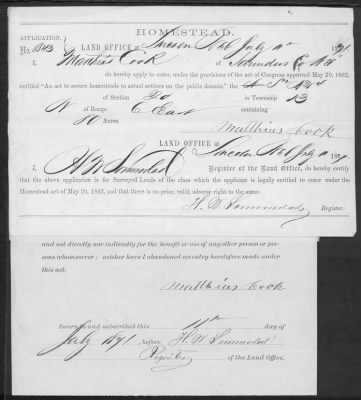 HOMESTEAD.
APPLICATION.
No. LAND OFFICE at Lincoln Neb July 1871
I, Mathias Cook of Saunders Co
do hereby apply to enter, under the provisions of the act of Congress approved May 20, 1862,
entitled "An act to secure homesteads to actual settlers on the public domain," the
of Section 20 in Township 13
N of Range 6 East containing
80 Acres.
Matthias Cook
LAND OFFICE at Lincoln Neb July 187
I, Register of the Land Office, do hereby certify
that the above application is for Surveyed Lands of the class which the applicant is legally entitled to enter under the
Homestead act of May 20, 1862, and that there is no prior, valid, adverse right to the same.
Register.
and not directly nor indirectly for the benefit or use of any other person or per-
sons whomsoever; neither have I abandoned an entry heretofore made under
this act.
Matthias Cook
Sworn to and subscribed this day of
July 1871, before
Register of the Land Office.